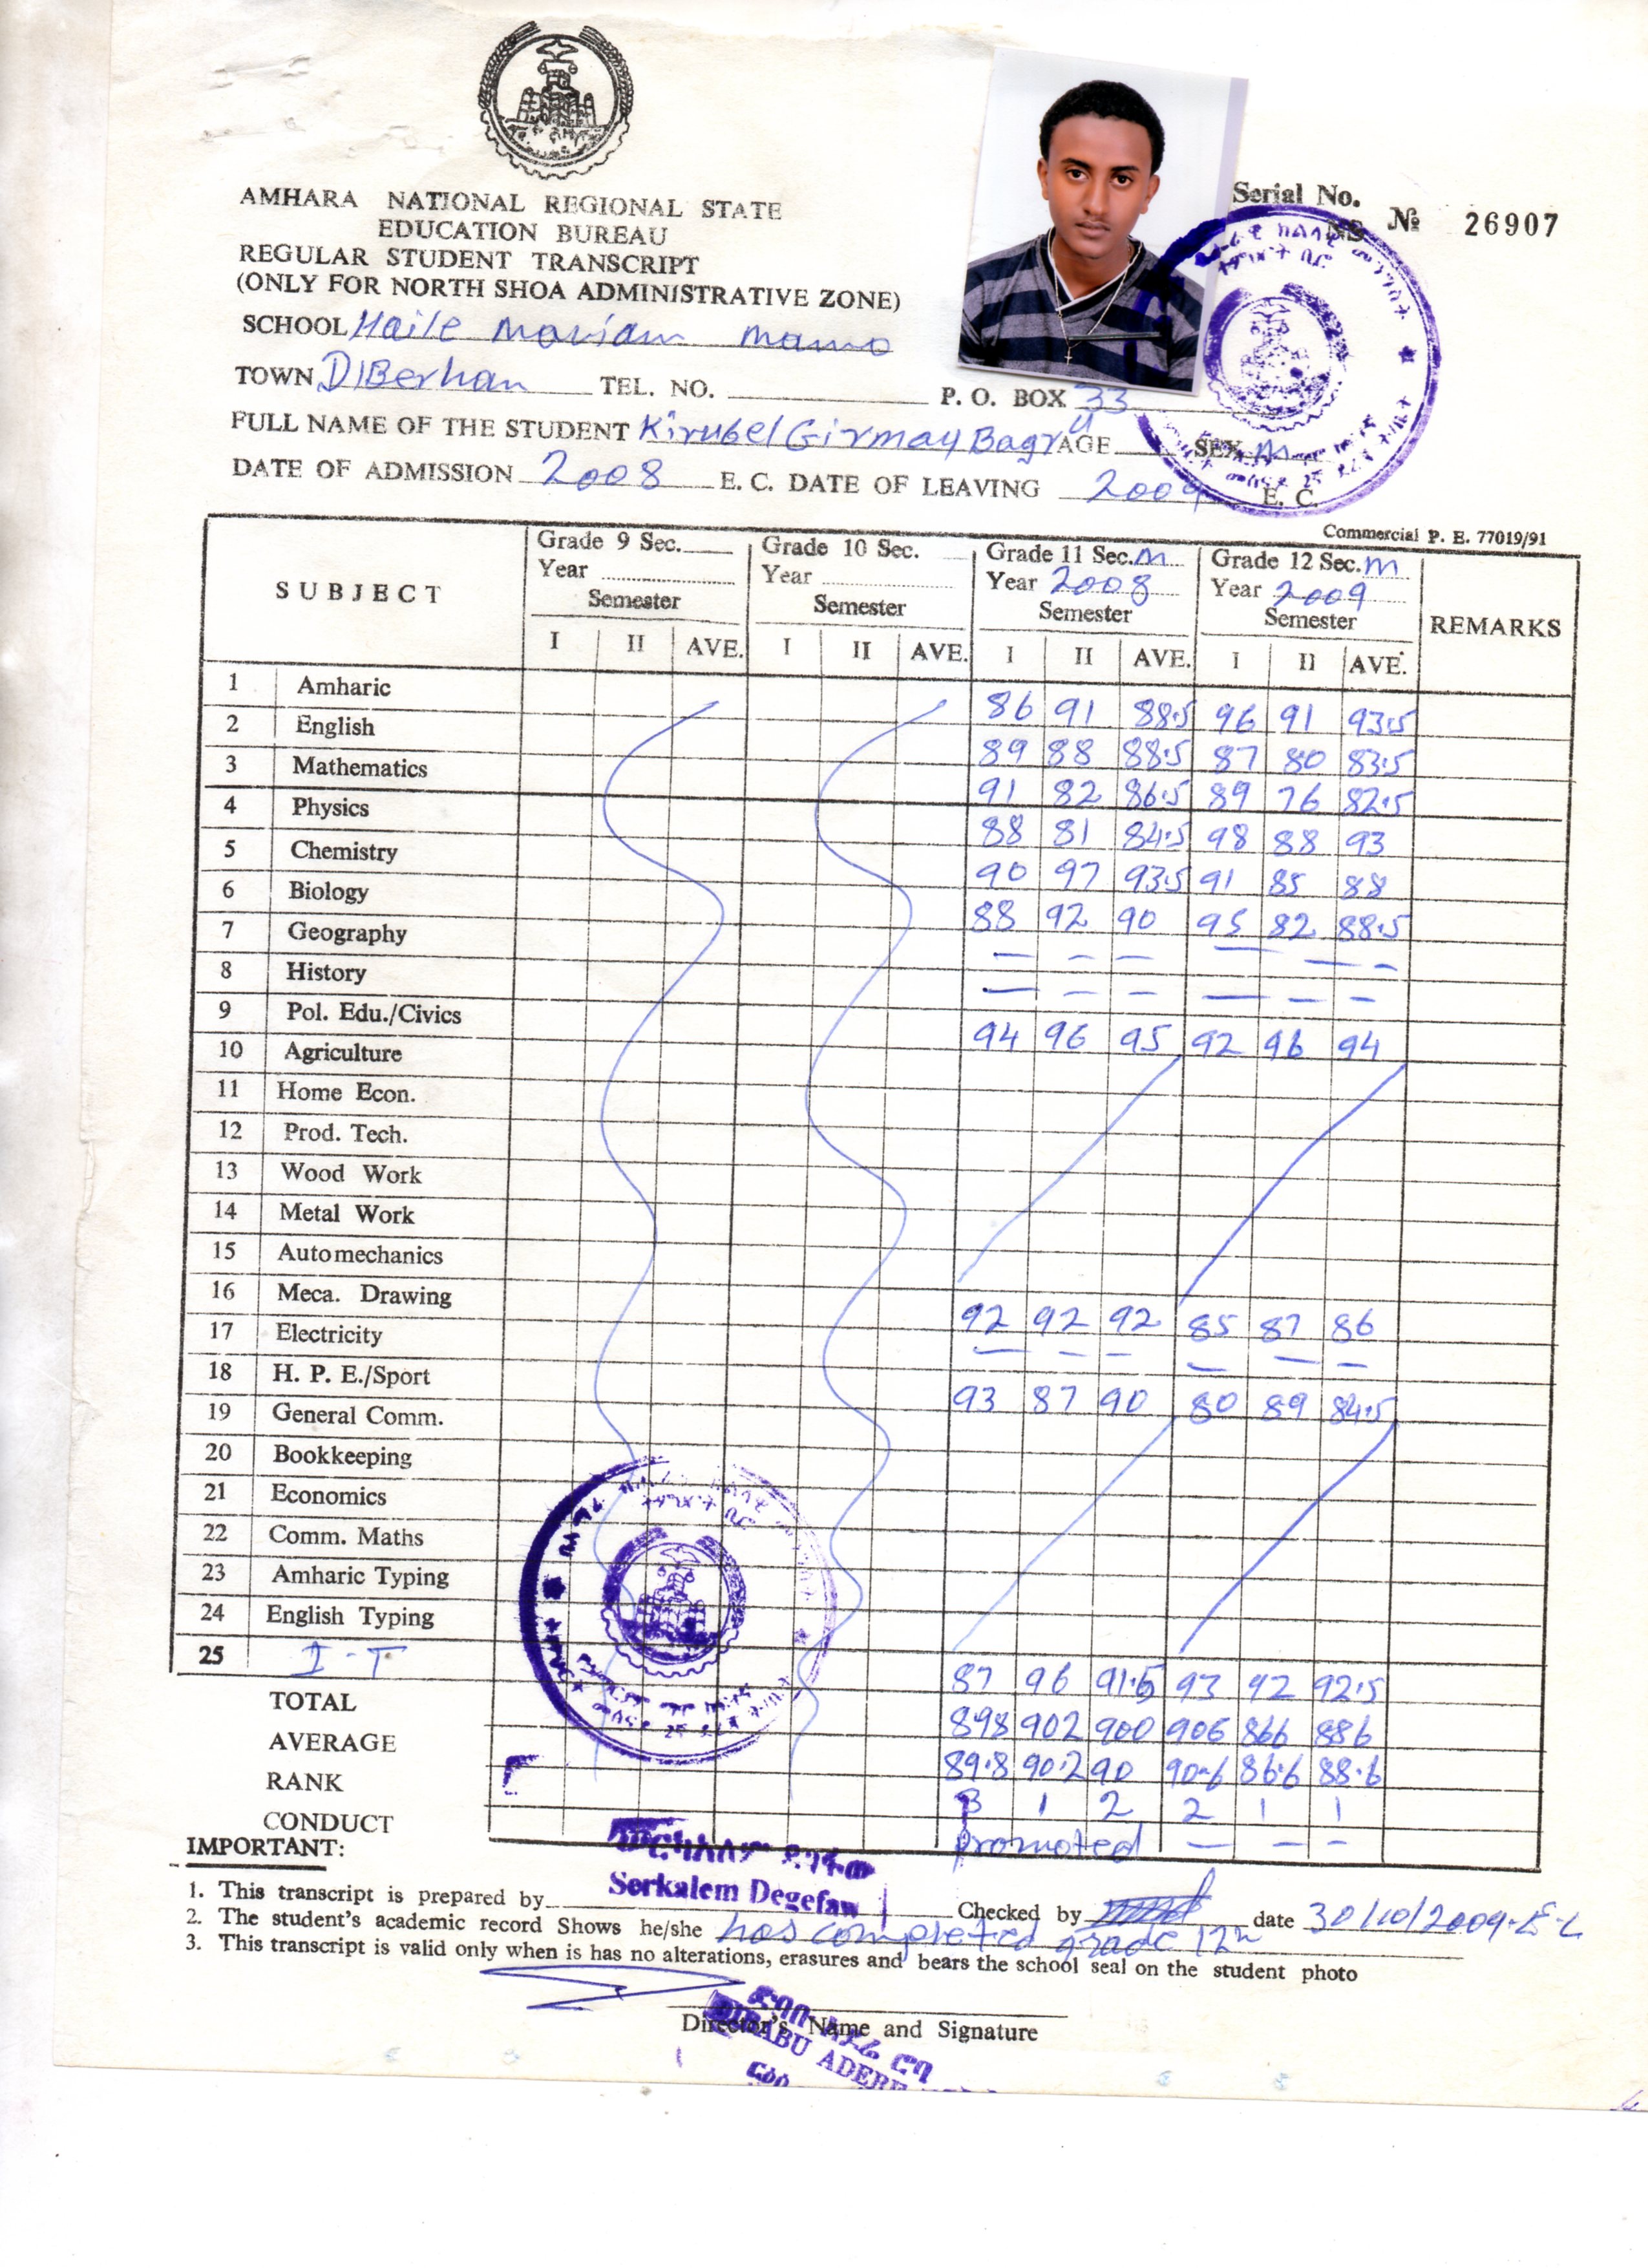 AMHARA NATIONAL REGIONAL STATE
EDUCATION BUREAU
REGULAR STUDENT TRANSCRIPT
(ONLY FOR NORTH SHOA ADMINISTRATIVE ZONE)
Serial No.
NS № 26907
SCHOOL Haile Mariam Mamo
TOWN D/Berhan TEL. NO. P. O. BOX 33
FULL NAME OF THE STUDENT Kirubel Girmay Bagru AGE SEX M
DATE OF ADMISSION 2008 E. C. DATE OF LEAVING 2009 E. C.
Commercial P. E. 77019/91
SUBJECT Grade 9 Sec. Grade 10 Sec. Grade 11 Sec. M Grade 12 Sec. M REMARKS
Year Year Year 2008 Year 2009
Semester Semester Semester Semester
I II AVE. I II AVE. I II AVE. I II AVE.
1 Amharic 86 91 88.5 96 91 93.5
2 English 89 88 88.5 87 80 83.5
3 Mathematics 91 82 86.5 89 76 82.5
4 Physics 88 81 84.5 98 88 93
5 Chemistry 90 97 93.5 91 85 88
6 Biology 88 92 90 95 82 88.5
7 Geography — — — — — —
8 History — — — — — —
9 Pol. Edu./Civics 94 96 95 92 96 94
10 Agriculture
11 Home Econ.
12 Prod. Tech.
13 Wood Work
14 Metal Work
15 Automechanics
16 Meca. Drawing 92 92 92 85 87 86
17 Electricity — — — — — —
18 H. P. E./Sport 93 87 90 80 89 84.5
19 General Comm.
20 Bookkeeping
21 Economics
22 Comm. Maths
23 Amharic Typing
24 English Typing
25 I-T 87 96 91.5 93 92 92.5
TOTAL 898 902 900 906 866 886
AVERAGE 89.8 90.2 90 90.6 86.6 88.6
RANK 3 1 2 2 1 1
CONDUCT promoted — — —
IMPORTANT:
1. This transcript is prepared by Serkalem Degefaw Checked by date 30/10/2009 E.C
2. The student's academic record Shows he/she has completed grade 12th
3. This transcript is valid only when is has no alterations, erasures and bears the school seal on the student photo
Director's Name and Signature